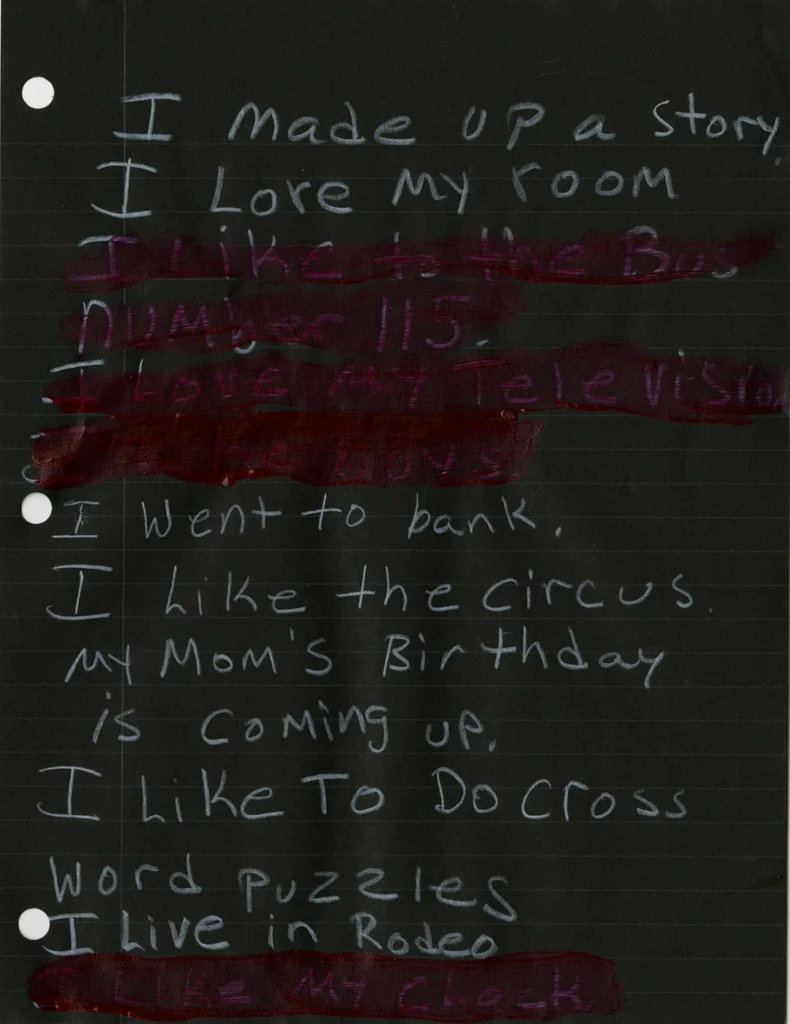 I made up a story.
I Love My room
I Like to the Bus
number 115.
I Love My Television
boys
I went to bank.
I Like the circus.
My Mom's Birthday
is coming up.
I Like To Do cross
word puzzles
I Live in Rodeo
I Like My Clock